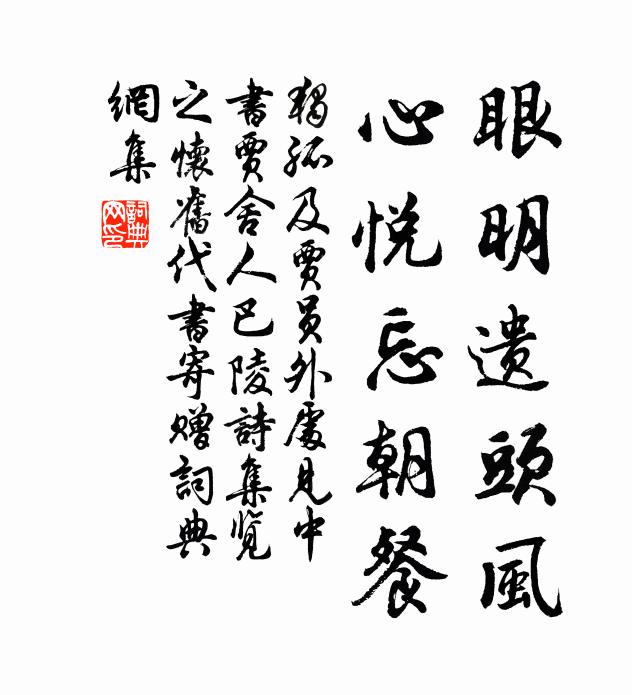 眼明遺頭風
心悦忘朝餐
獨孤及賈員外處見中
書賈舍人巴陵詩集览
之懷舊代書寄贈詞典
網集
詞典網印